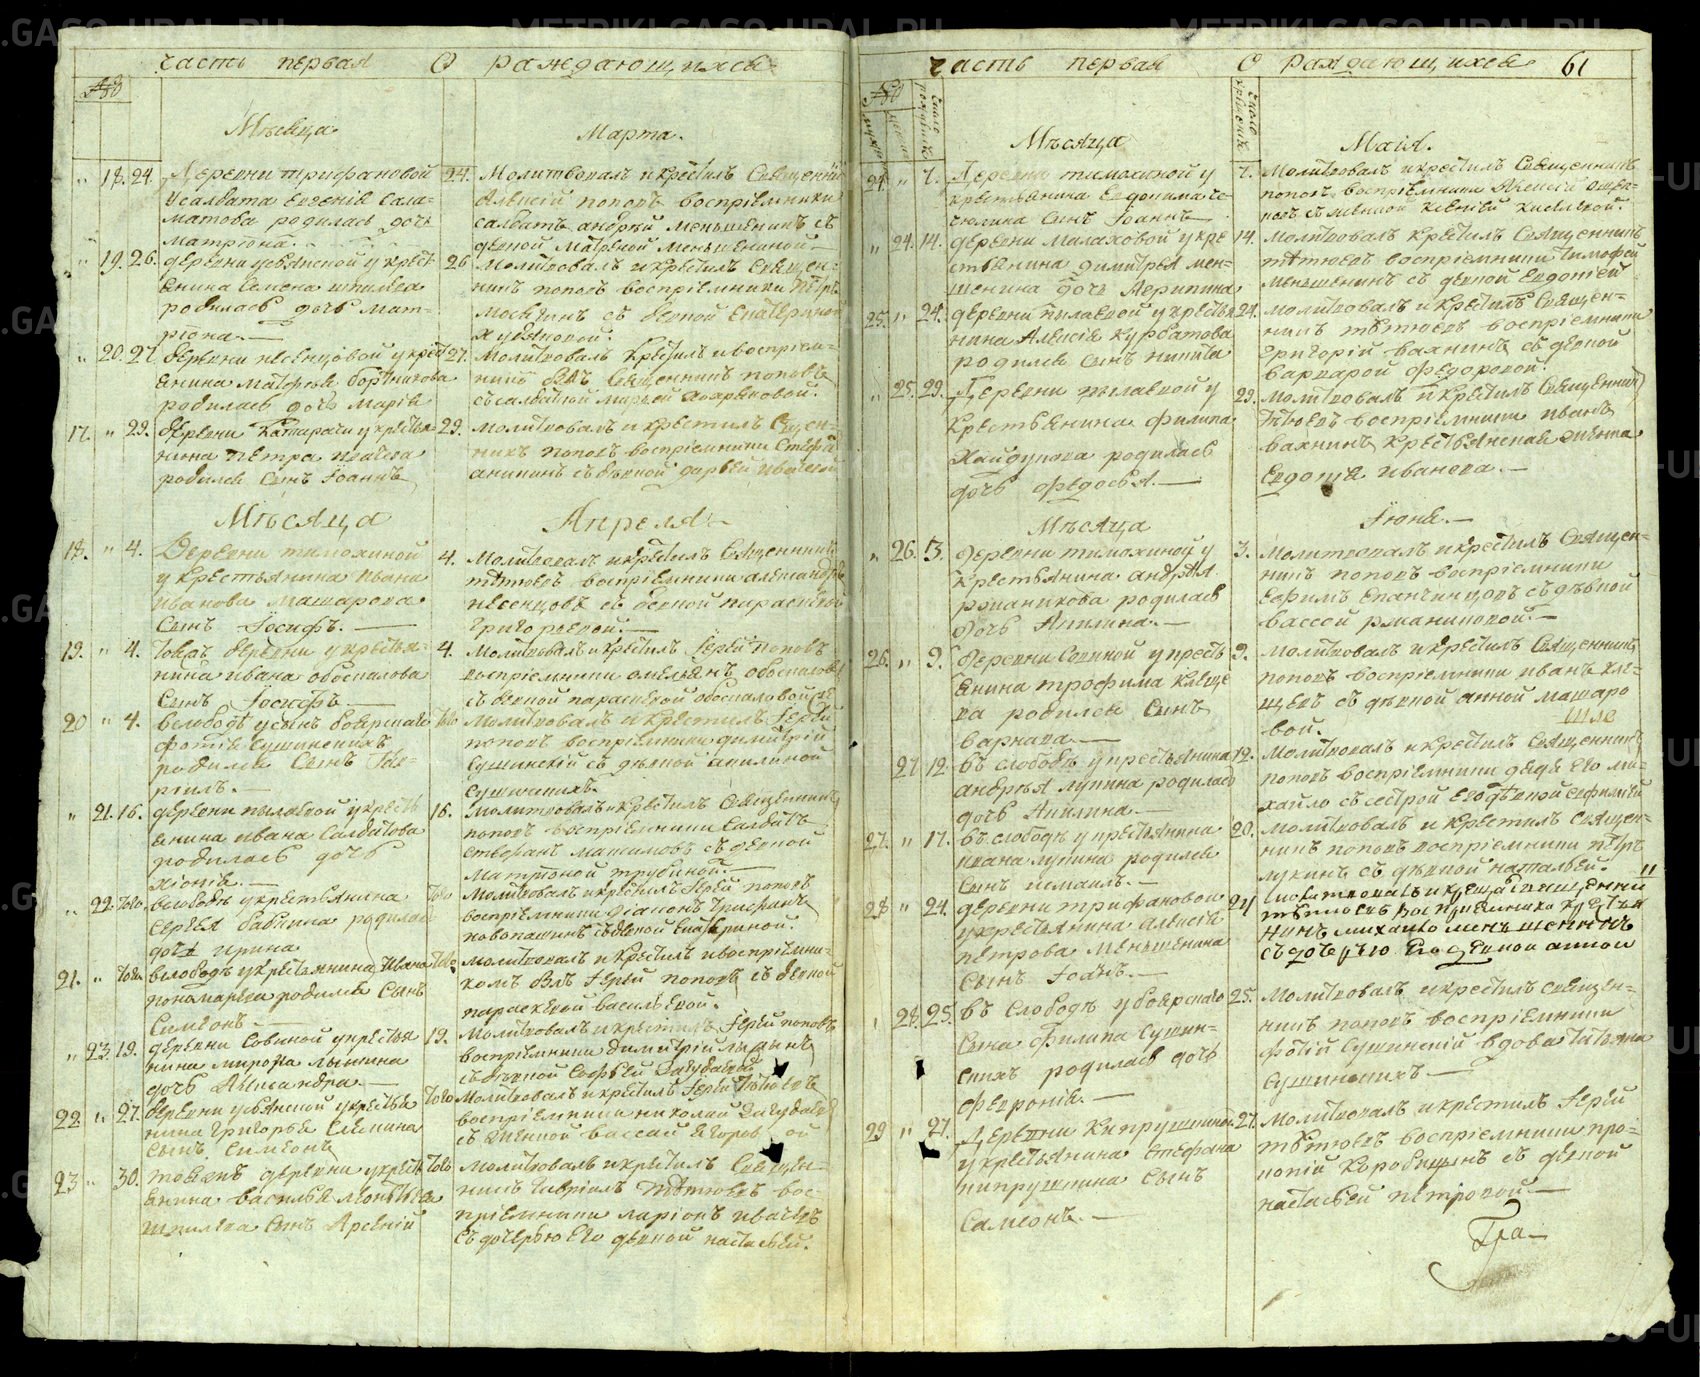 часть первая О раждающихся
№
Мѣсяца Марта.
18. 24. Деревни трифановой
у салдата Евгенія Сала-
матова родилась дочь
матрюна.
24. Молитвовалъ и крестилъ Священникъ
Алексій поповъ воспріемники
салдатъ андрей меньшенинъ съ
девкой
19. 26. деревни усвянской у крестья-
енина Семена шпилева
родилась дочь мат-
ріона.
26 Молитвовалъ и крестилъ Священ-
никъ поповъ воспріемники Петръ
съ девкой Екатериной
20. 27 деревни песенцовой у крестья-
янина матфея бортникова
родилась дочь марія
27. Молитвовалъ крестилъ и воспріем-
никъ былъ Священникъ поповъ
съ салдаткой марьей
17. " 29. деревни Катарачи у крестья-
нина петра ивачева
родился Сынъ Іоаннъ
29. молитвовалъ и крестилъ Священ-
никъ поповъ воспріемники Стефанъ
аникинъ съ девкой дарьей ивачевой
Мѣсяца Апреля
18. " 4. Деревни тимохиной
у крестьянина Ивана
Иванова машарова
Сынъ Іосифъ.
4. Молитвовалъ и крестилъ Священникъ
тетюевъ воспріемники александръ
песенцовъ съ девкой параскевой
григорьевой.
19. " 4. тояжъ деревни у крестья-
нина ивана обоскалова
Сынъ Іосифъ
4. Молитвовалъ и крестилъ Іерей поповъ
воспріемники
съ девкой параскевой обоскаловой
20 " 4. в слободѣ у сына боярскаго
фотія Сушинскихъ
родился Сынъ Гав-
ріилъ.
того Молитвовалъ и крестилъ Іерей
поповъ воспріемники димитрій
Сушинскій съ девкой акилиной
Сушинскихъ.
" 21. 16. деревни пылаевой у кресть-
янина ивана Салдатова
родилась дочь
хіонія.
16. молитвовалъ и крестилъ Священникъ
поповъ воспріемники Салдатъ
стефанъ максимовъ съ девкой
матрионой трубиной.
" 22. того. в слободѣ у крестьянина
Сергея бабкина родилась
дочь ирина
того Молитвовалъ и крестилъ Іерей поповъ
воспріемники діаконъ трифанъ
новопашинъ съ девкой Екатериной.
21. " того. в слободѣ у крестьянина Ивана
пономарева родился Сынъ
Симеонъ
того. молитвовалъ и крестилъ и воспріемни-
комъ былъ Іерей поповъ съ девкой
параскевой васильевой.
" 23. 19. деревни Совиной у крестья-
нина мирона лыкина
дочь Александра
19. Молитвовалъ и крестилъ Іерей поповъ
воспріемники димитрій лыкинъ
съ девкой Софьей
22 " 27. деревни усвянской у крестья-
нина григорья Елькина
Сынъ Симеонъ
того Молитвовалъ и крестилъ Іерей тетюевъ
воспріемники николай
23 " 30. тоеяжъ деревни у кресть-
янина василья
шпилева Сынъ Арсеній
того молитвовалъ и крестилъ Священ-
никъ гавріилъ тетюевъ вос-
пріемники ларіонъ ивачевъ
съ дочерью его девкой настасьей.
часть первая О раждающихся 61
№
мужск женск
Число рожденія
Число крещенія
Мѣсяца Маія.
24. " 7. Деревни тимохиной у
крестьянина Евдокима
Сынъ Іоаннъ
7. Молитвовалъ и крестилъ Священникъ
поповъ воспріемники Алексій
поповъ съ
" 24. 14. деревни малаховой у кре-
стьянина димитрея мен-
шенина дочь Акрипина
14. Молитвовалъ крестилъ Священникъ
тетюевъ воспріемники тимофей
меньшенинъ съ девкой Евдокіей
25. " 24. деревни пылаевой у крестья-
нина Алексія Курбатова
родился Сынъ никита
24. молитвовалъ и крестилъ Священ-
никъ тетюевъ воспріемники
григорій вахнинъ съ девкой
варварой федоровой.
" 25. 29. Деревни пылаевой у
Крестьянина филипа
Хайдукова родилась
дочь федосья.
29. молитвовалъ и крестилъ Священникъ
тетюевъ воспріемники иванъ
вахнинъ крестьянская женка
Евдокія иванова.
Мѣсяца Іюня.
" 26. 3. деревни тимохиной у
крестьянина андрея
ржаникова родилась
дочь Акилина.
3. Молитвовалъ и крестилъ Священ-
никъ поповъ воспріемники
Ефимъ Епанчинцовъ съ девкой
вассой ржаниковой.
26. " 9. деревни Совиной у кресть-
янина трофима Клеще-
ва родился Сынъ
варнава.
9. молитвовалъ и крестилъ Священникъ
поповъ воспріемники иванъ кле-
щевъ съ девкой анной машаро
вой.
27 12. въ слободѣ у крестьянина
андрея лукина родилась
дочь Акилина.
12. Молитвовалъ и крестилъ Священникъ
поповъ воспріемники дядя его ми-
хайло съ сестрой его девкой
27. " 17. въ слободѣ у крестьянина
ивана лукина родился
Сынъ измаилъ.
20. молитвовалъ и крестилъ Священ-
никъ поповъ воспріемники петръ
лукинъ съ девкой натальей.
28. " 24. деревни трифановой
у крестьянина алексія
петрова меньшенина
Сынъ Іоаннъ.
24 Молитвовалъ и крестилъ Священникъ
тетюевъ воспріемники крестья
нинъ михайло меншенинъ
съ дочерью его девкой анной
" 28. 25. въ слободѣ у боярскаго
Сына филипа Сушин-
скихъ родилась дочь
февронія.
25. молитвовалъ и крестилъ Священ-
никъ поповъ воспріемники
фотій Сушинскій вдова татьяна
Сушинскихъ
29 " 27. Деревни Кипрушкиной
у крестьянина Стефана
кипрушкина Сынъ
Самсонъ.
27. Молитвовалъ и крестилъ Іерей
тетюевъ воспріемники про-
копій Коробицынъ съ девкой
настасьей петровой.